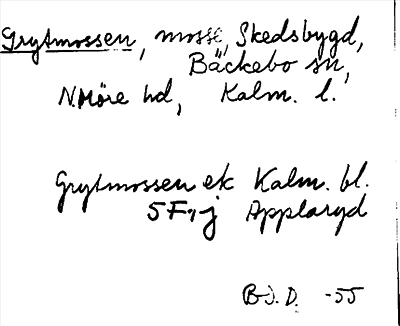 Grytmossen, mosse, Skedsbygd,
Bäckebo sn,
N.Möre hd, Kalm. l.
Grytmossen ek Kalm. bl.
5F7j Applaryd
B.J.D. -55